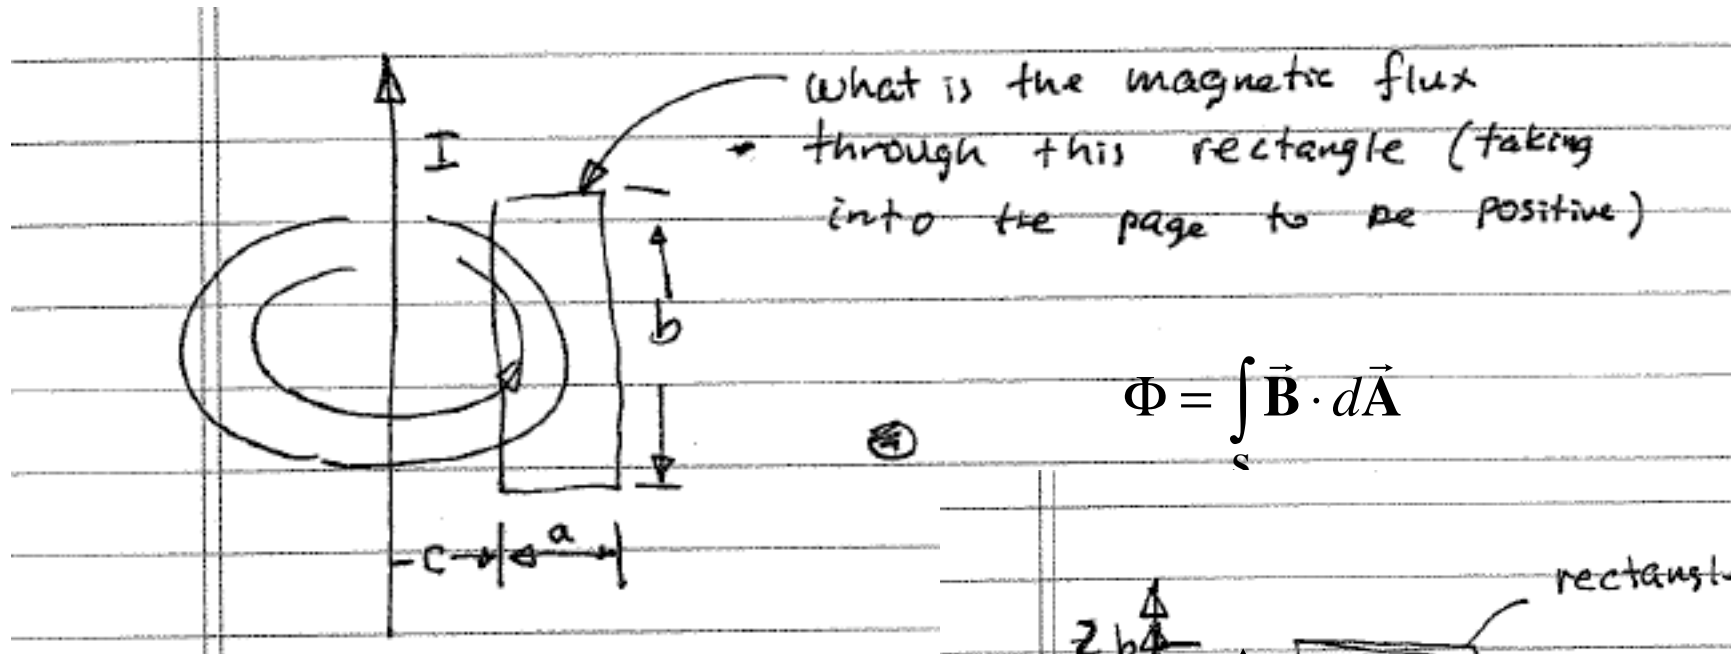 What is the magnetic flux
through this rectangle (taking
into the page to be positive)
I
b
Φ = ∫ B⃗ · dA⃗
S
c
a
rectangl
z b